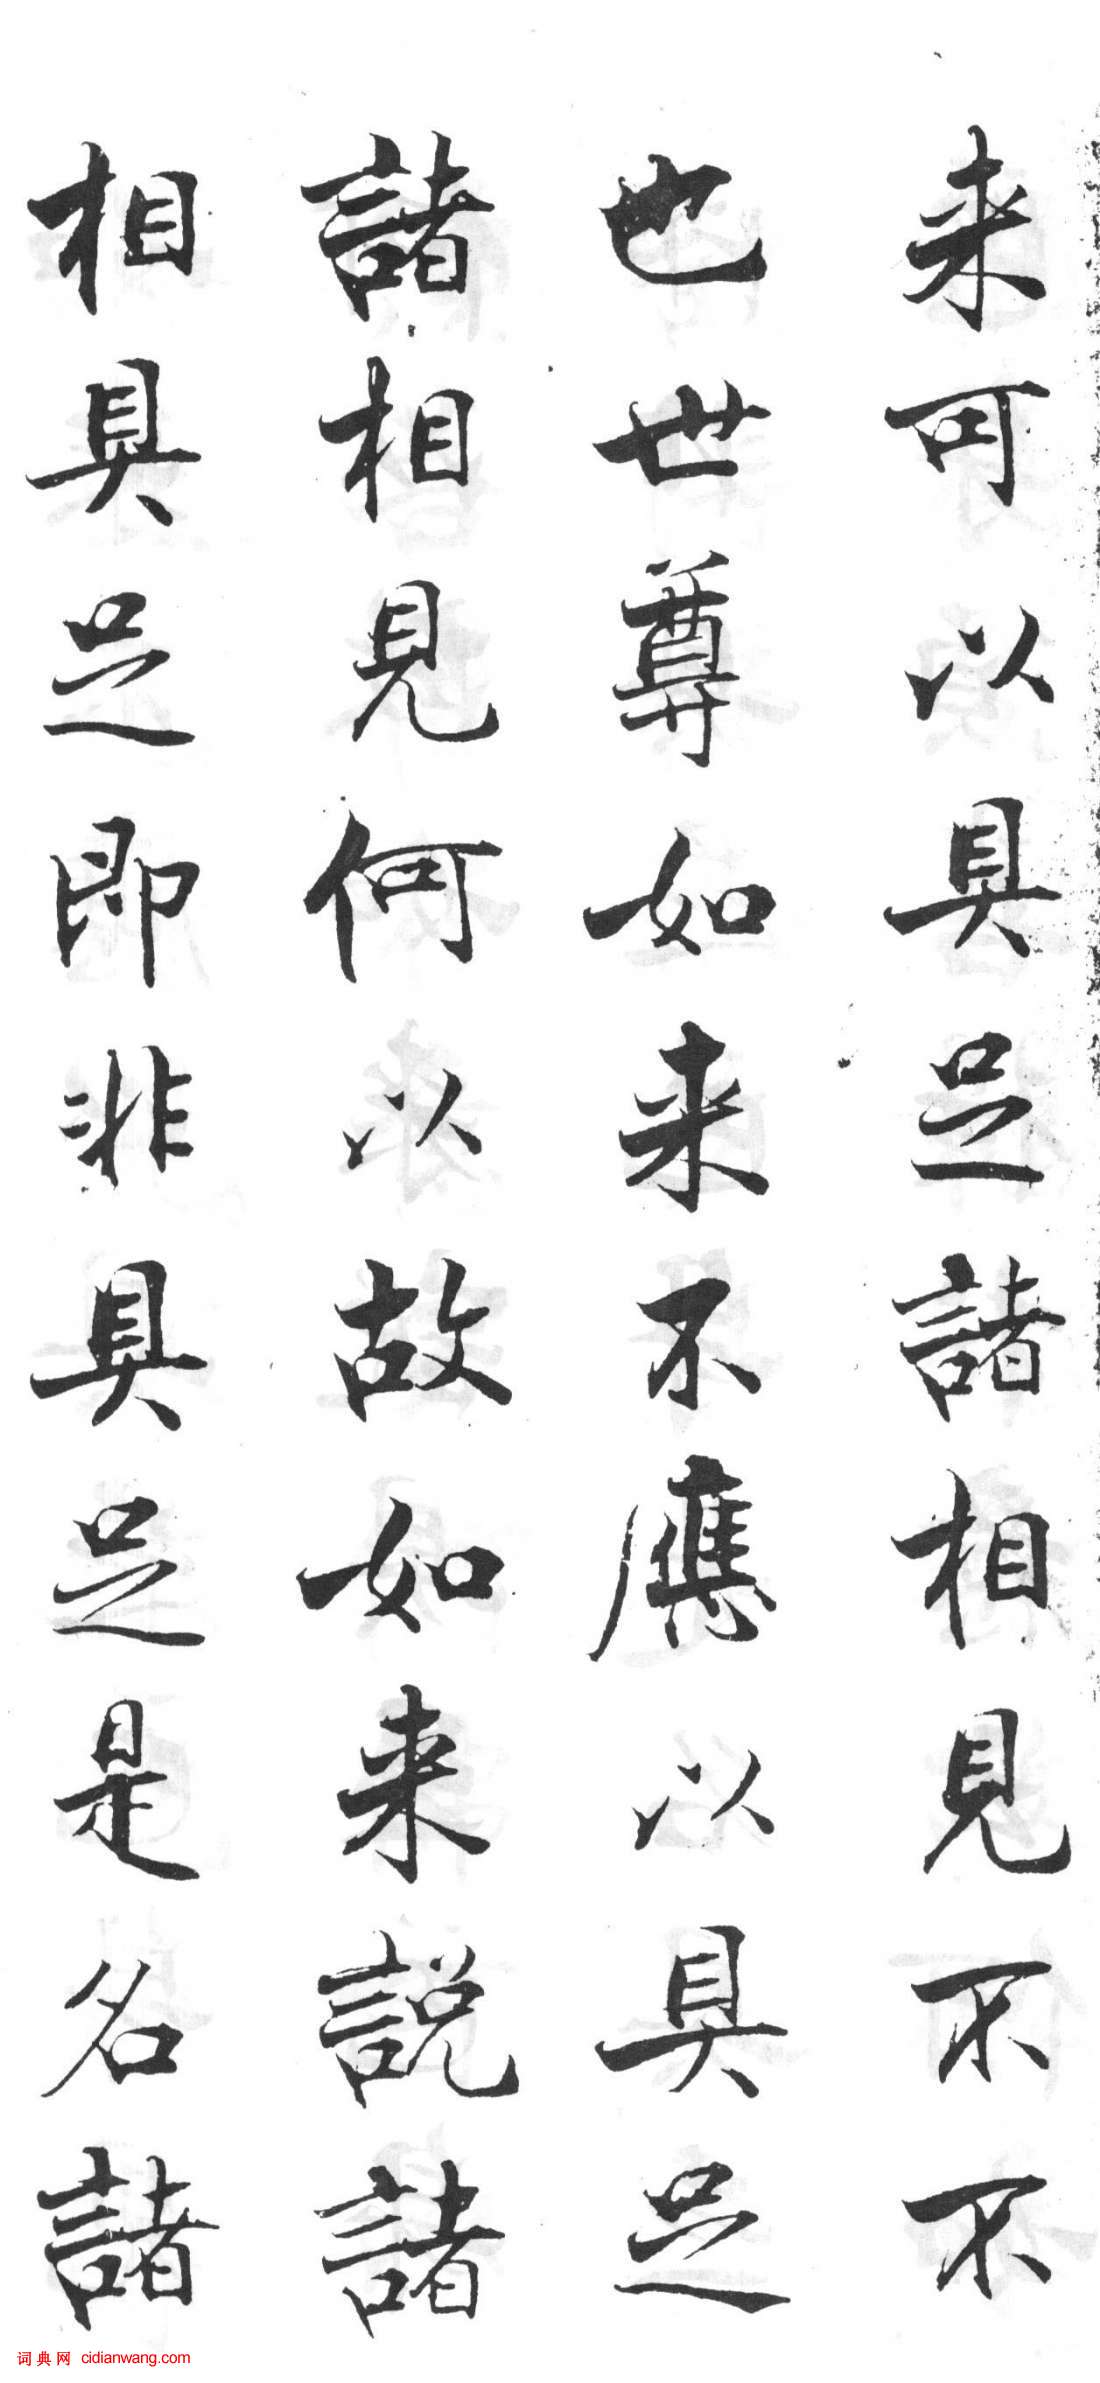 来可以具足諸相見不不
也世尊如来不應以具足
諸相見何以故如来説諸
相具足即非具足是名諸
词典网 cidianwang.com